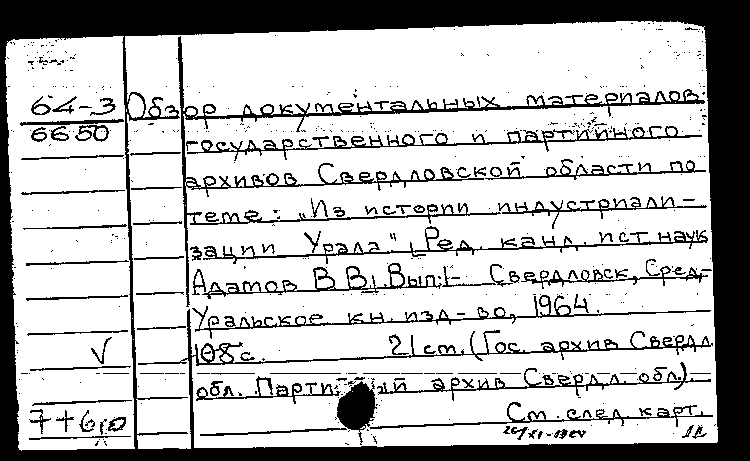 64-3 Обзор документальных материалов
6650 государственного и партийного
архивов Свердловской области по
теме: „Из истории индустриали-
зации Урала" [Ред. канд. ист. наук
Адамов В В]. Вып. 1- Свердловск, Сред.-
Уральское кн. изд-во, 1964.
108 с. 21 см. (Гос. архив Свердл.
обл. Партийный архив Свердл. обл).
См. след. карт.